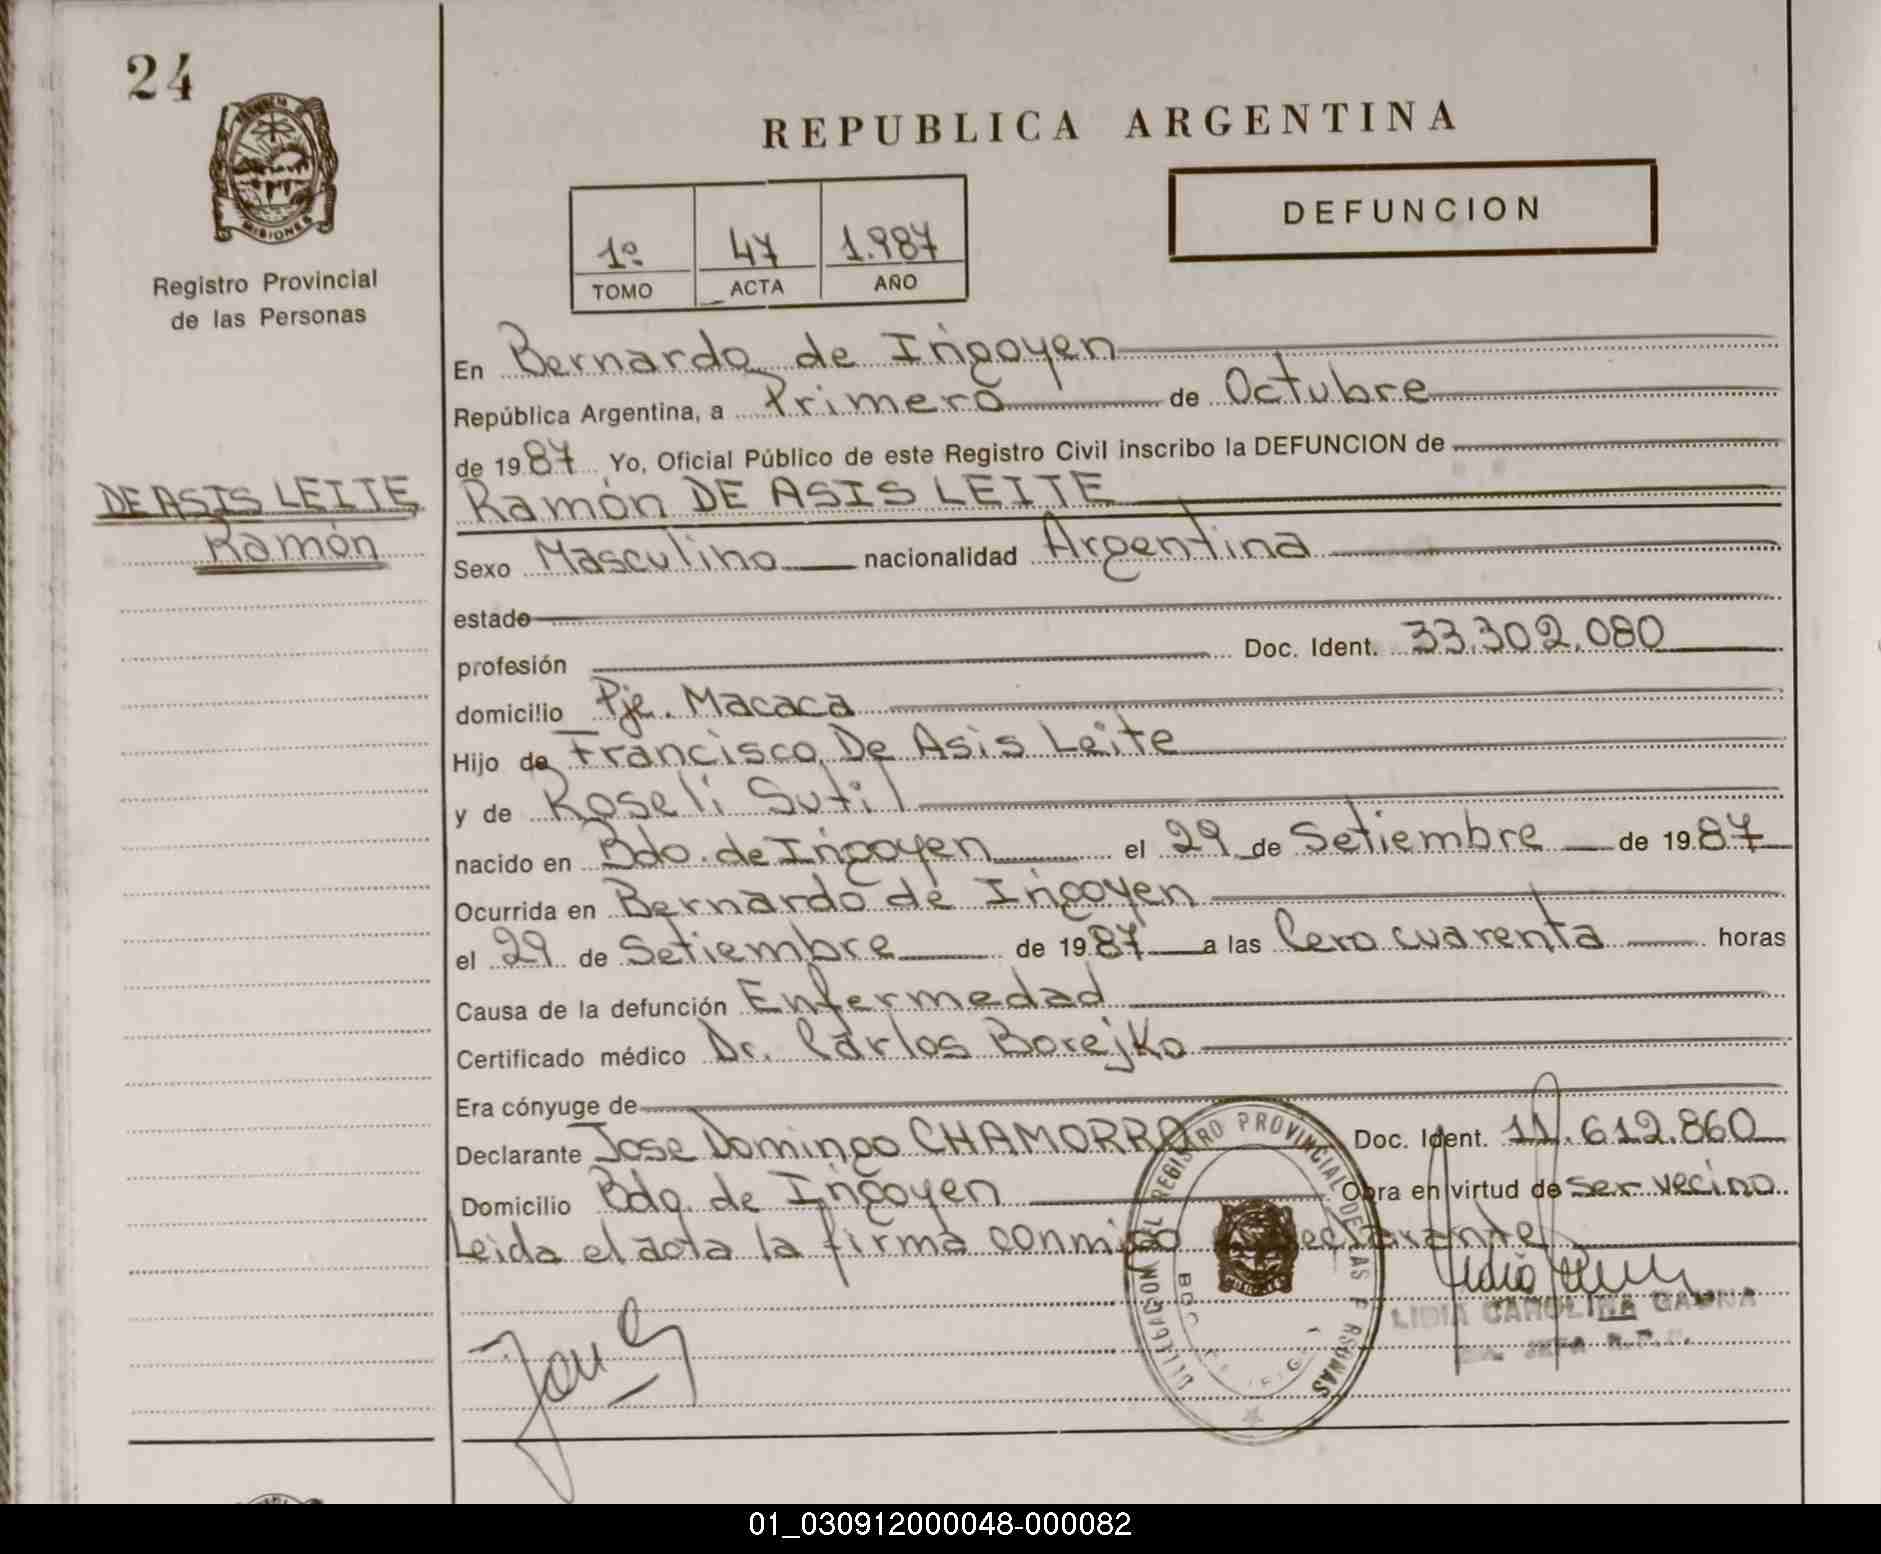 24
MISIONES
Registro Provincial
de las Personas
REPUBLICA ARGENTINA
DEFUNCION
1º 47 1.987
TOMO ACTA AÑO
En Bernardo de Irigoyen
República Argentina, a Primero de Octubre
de 1987 Yo, Oficial Público de este Registro Civil inscribo la DEFUNCION de
DE ASIS LEITE
Ramón
Ramón DE ASIS LEITE
Sexo Masculino nacionalidad Argentina
estado
profesión Doc. Ident. 33.302.080
domicilio Pje. Macaca
Hijo de Francisco De Asis Leite
y de Roselí Sutil
nacido en Bdo. de Irigoyen el 29 de Setiembre de 1987
Ocurrida en Bernardo de Irigoyen
el 29 de Setiembre de 1987 a las Cero cuarenta horas
Causa de la defunción Enfermedad
Certificado médico Dr. Carlos Borejko
Era cónyuge de
Declarante Jose Domingo CHAMORRO Doc. Ident. 11.612.860
Domicilio Bdo. de Irigoyen Obra en virtud de ser vecino
Leida el acta la firma conmigo declarante
DELEGACION DEL REGISTRO PROVINCIAL DE LAS PERSONAS
MISIONES
LIDIA CAROLINA
01_030912000048-000082